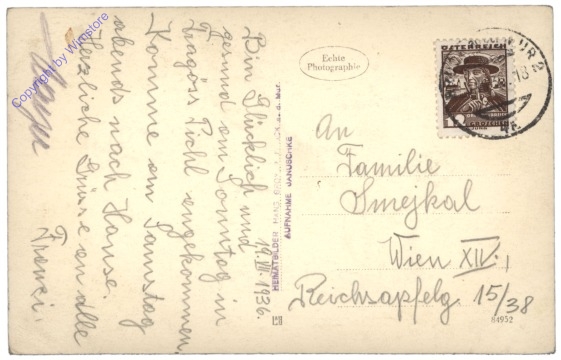 19.VII.1936.
Bin Glücklich und
gesund am Sonntag in
Tragöss Pichl angekommen.
Komme am Samstag
abends nach Hause.
Herzliche Grüsse an alle
Frenci.
Echte
Photographie
HEIMATBILDER HANS
AUFNAHME JANUSCHKE
ÖSTERREICH
12 GROSCHEN
An
Familie
Smejkal
Wien XIV.,
Reichsapfelg. 15/38
84952
Copyright by Wimstore